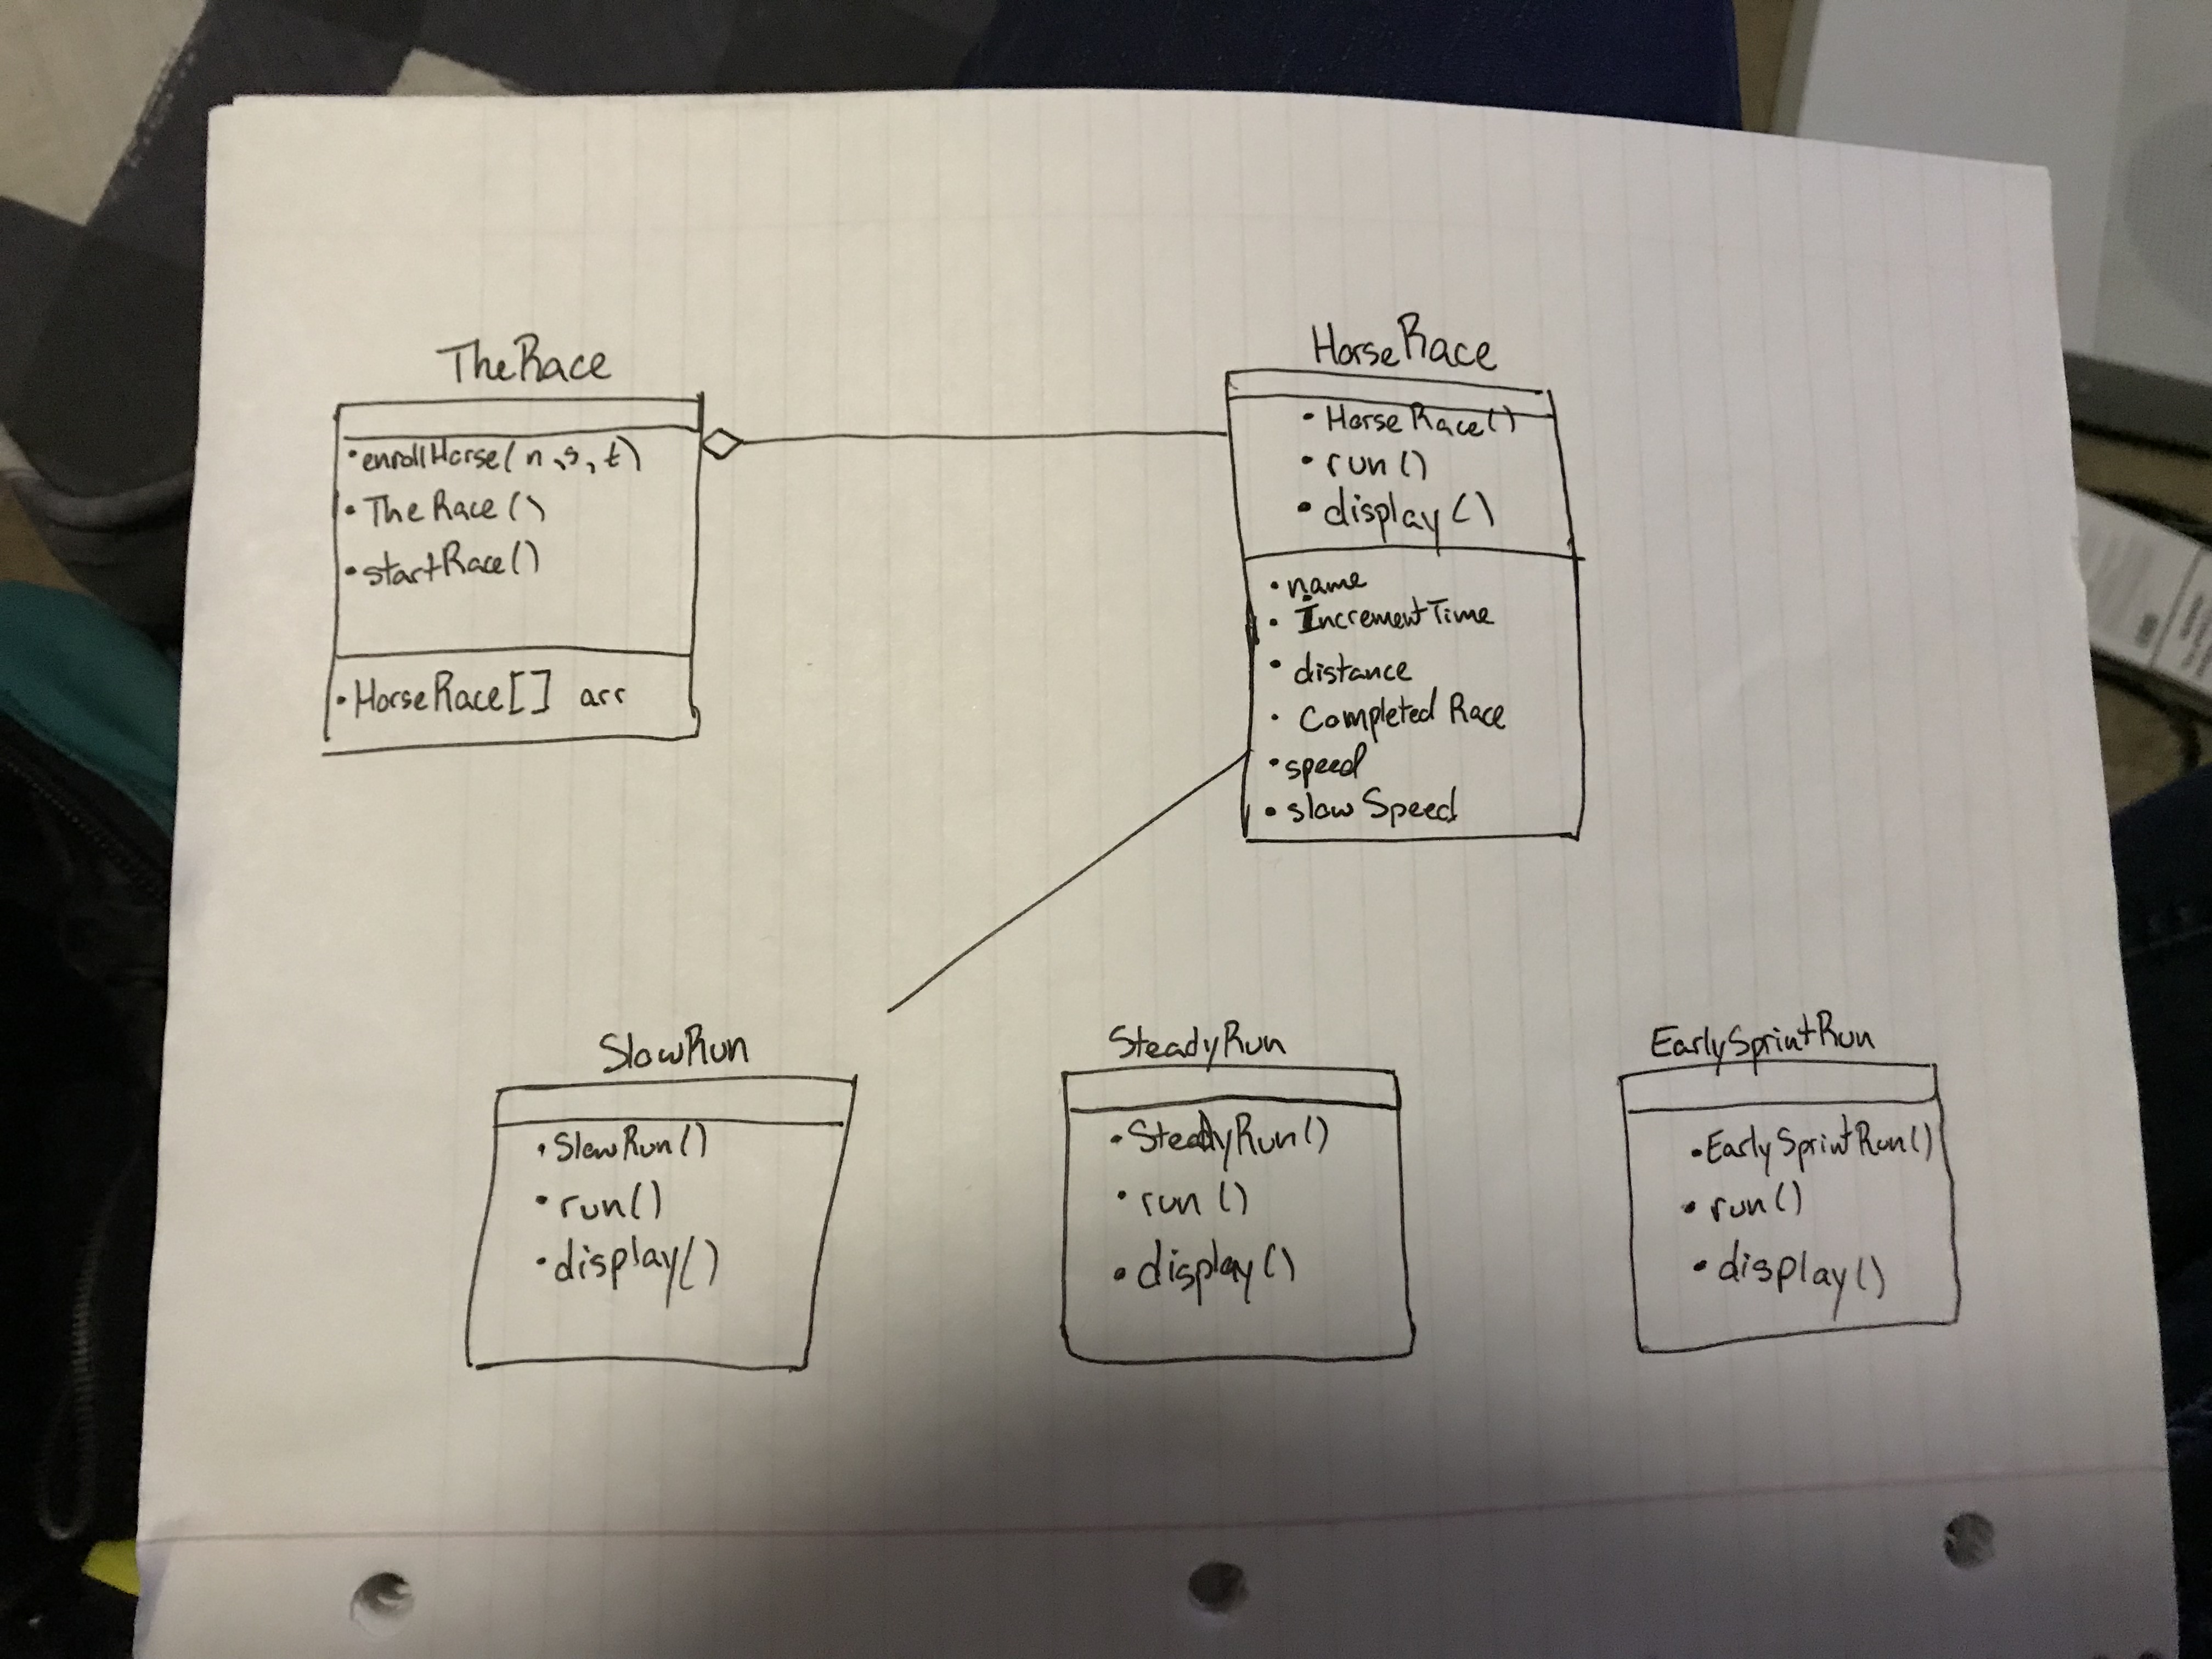 TheRace
• enrollHorse(n,s,t)
• TheRace()
• startRace()
• HorseRace[] arr
HorseRace
• HorseRace()
• run()
• display()
• name
• IncrementTime
• distance
• Completed Race
• speed
• slowSpeed
SlowRun
• SlowRun()
• run()
• display()
SteadyRun
• SteadyRun()
• run()
• display()
EarlySprintRun
• EarlySprintRun()
• run()
• display()